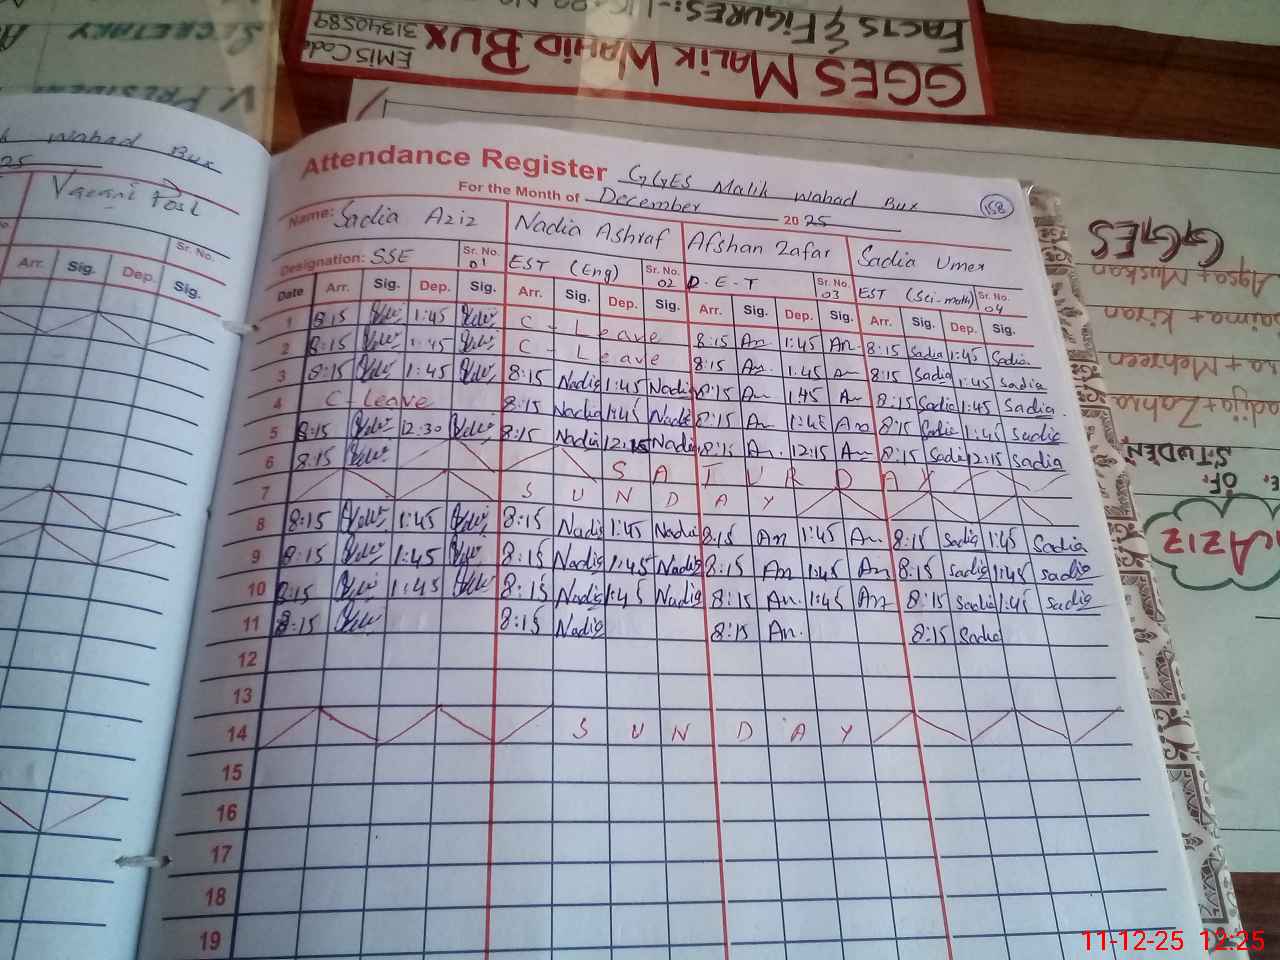 GGES MALIK WAHID BUX
EMIS Code
31340589
FACTS & FIGURES:-
SECRETARY
V. PRESIDENT
Wahad Bux
25
Vacant Post
Sr. No.
Arr. Sig. Dep. Sig.
Attendance Register GGES Malik Wahad Bux
158
For the Month of December 2025
Name: Sadia Aziz Nadia Ashraf Afshan Zafar Sadia Umer
Designation: SSE Sr. No. 01 EST (Eng) Sr. No. 02 D.E.T Sr. No. 03 EST (Sci-math) Sr. No. 04
Date Arr. Sig. Dep. Sig. Arr. Sig. Dep. Sig. Arr. Sig. Dep. Sig. Arr. Sig. Dep. Sig.
1 8:15 1:45 C - Leave 8:15 An 1:45 An 8:15 Sadia 1:45 Sadia
2 8:15 1:45 C - Leave 8:15 An. 1:45 An 8:15 Sadia 1:45 Sadia
3 8:15 1:45 8:15 Nadia 1:45 Nadia 8:15 An 1:45 An 8:15 Sadia 1:45 Sadia
4 C Leave 8:15 Nadia 1:45 Nadia 8:15 An 1:45 An 8:15 Sadia 1:45 Sadia
5 8:15 12:30 8:15 Nadia 12:15 Nadia 8:15 An. 12:15 An 8:15 Sadia 12:15 Sadia
6 8:15 SATURDAY
7 SUNDAY
8 8:15 1:45 8:15 Nadia 1:45 Nadia 8:15 An 1:45 An 8:15 Sadia 1:45 Sadia
9 8:15 1:45 8:15 Nadia 1:45 Nadia 8:15 An 1:45 An 8:15 Sadia 1:45 Sadia
10 8:15 1:45 8:15 Nadia 1:45 Nadia 8:15 An. 1:45 An 8:15 Sadia 1:45 Sadia
11 8:15 8:15 Nadia 8:15 An. 8:15 Sadia
12
13
14 SUNDAY
15
16
17
18
19
GGES
Aqsa + Muskan
+ Kiran
+ Mehreen
+ Zahra
OF
AZIZ
11-12-25 12:25